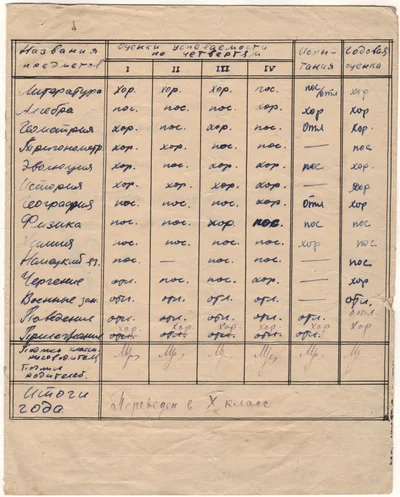 Названия предметов Оценки успеваемости по четвертям Испытания Годовая оценка
I II III IV
Литература хор. хор. хор. пос. пос отл хор
Алгебра пос. пос. пос. хор. хор хор
Геометрия хор. пос. хор. пос. отл хор.
Тригонометр. хор. хор. пос. пос. — пос
Эволюция хор. пос. хор. хор. пос хор.
История хор. хор. хор. хор. — хор
География пос. пос. пос. хор. отл хор.
Физика пос. пос. хор. пос. пос пос
Химия пос. пос. пос. пос. хор пос
Немецкий яз. пос. — пос. пос. — пос
Черчение отл. пос. пос. хор. — хор
Военные зан. отл. отл. отл. отл. — отл.
Поведение отл. отл. отл. отл. отл. отл
хор хор. хор. хор. хор хор
Прилежание отл. отл. отл. отл. отл.
Подпись классн. руководителя
Подпись родителей.
Итоги года Переведен в X класс